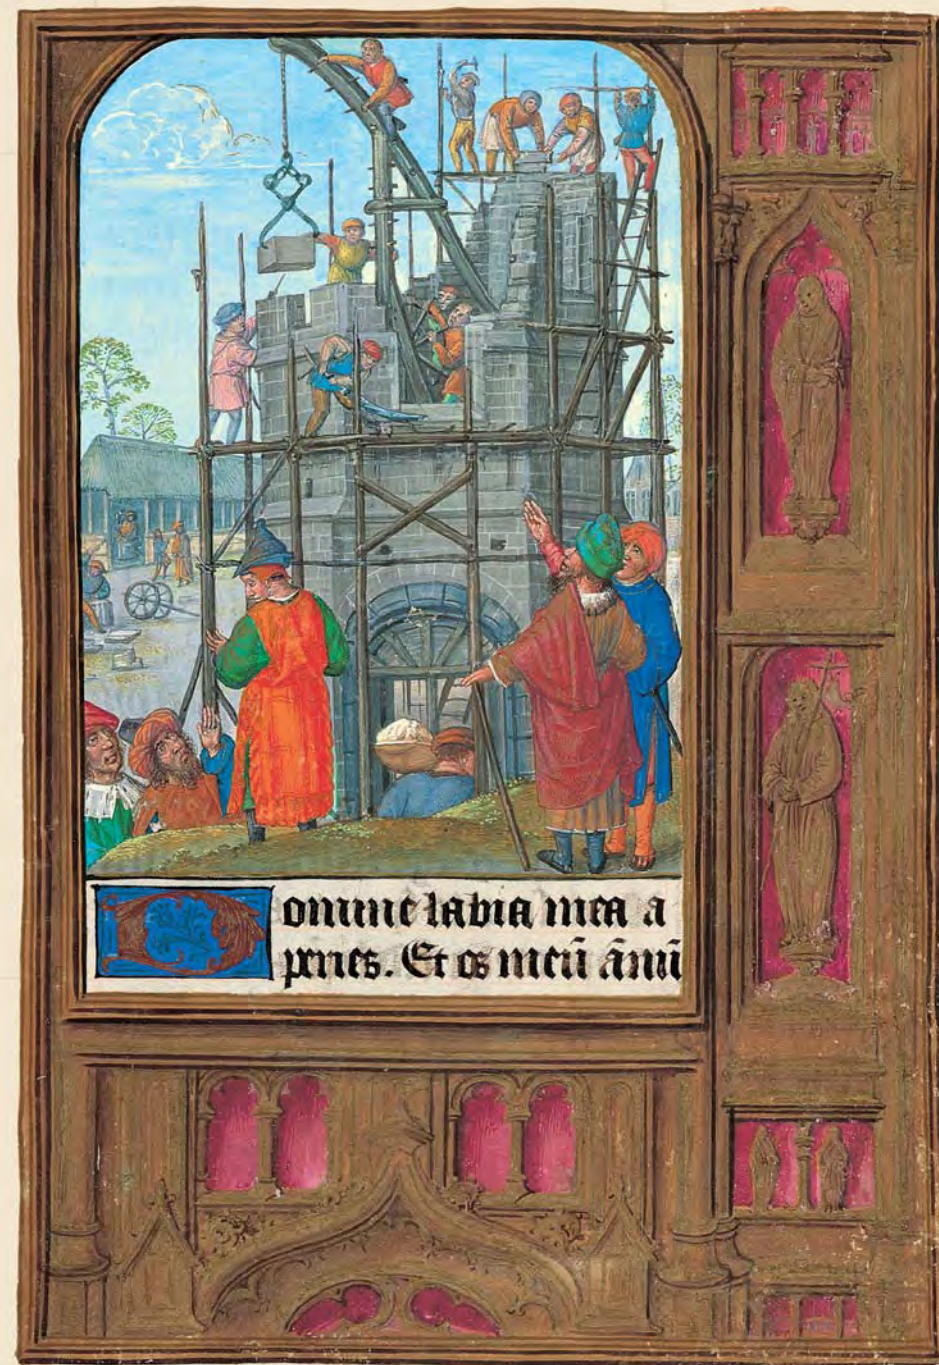 Domine labia mea a
peries. Et os meū ānūi